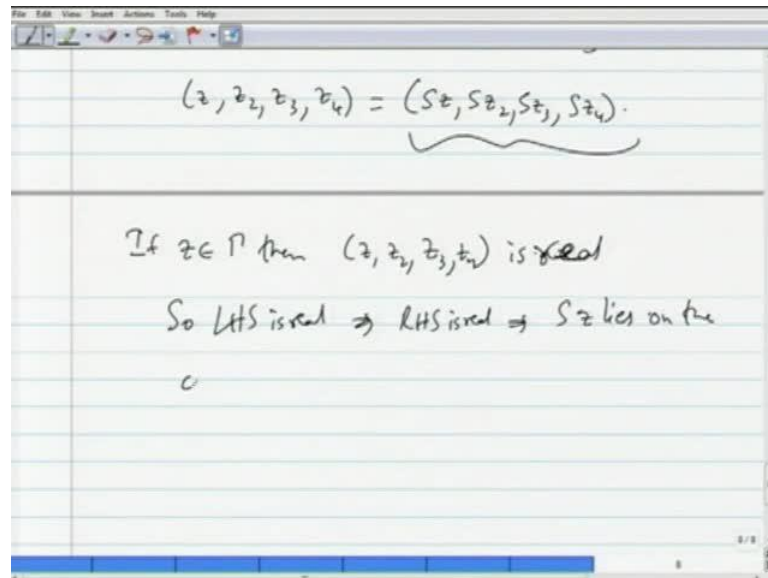 File Edit View Insert Actions Tools Help
(z, z₂, z₃, z₄) = (Sz, Sz₂, Sz₃, Sz₄).
If z ∈ Γ then (z, z₂, z₃, z₄) is real
So LHS is real ⇒ RHS is real ⇒ Sz lies on the
c
8/8
8